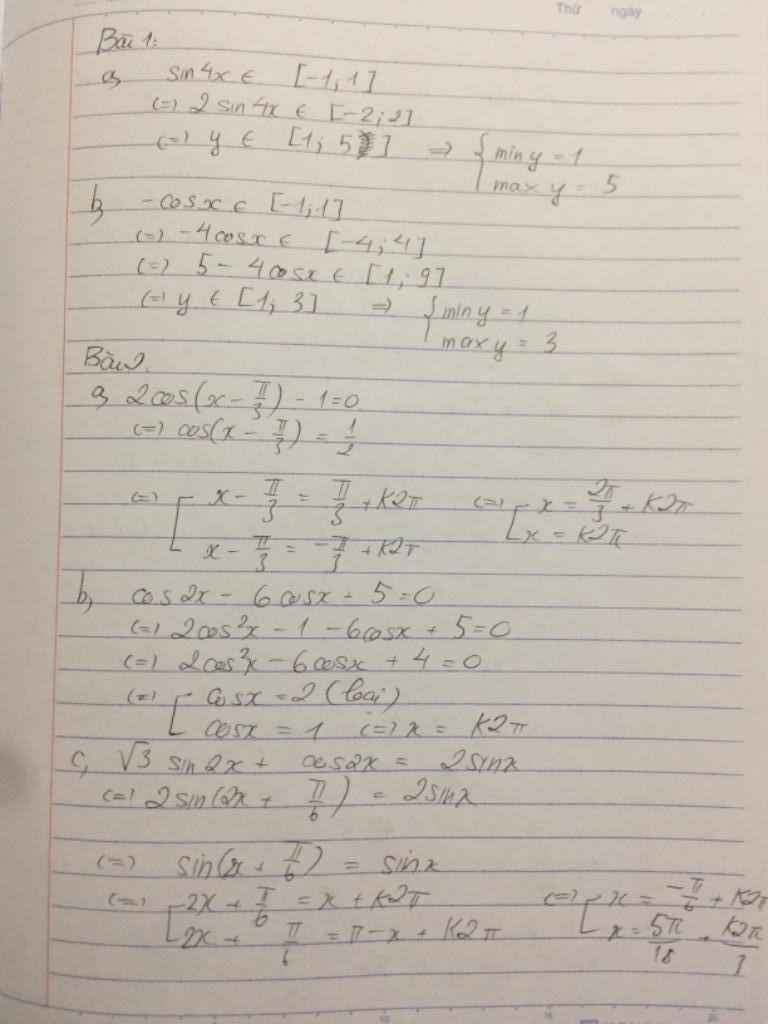 Thứ ngày
Bài 1:
a, sin4x ∈ [-1;1]
(=) 2sin4x ∈ [-2;2]
(=) y ∈ [1; 5] ⇒ { min y = 1
max y = 5
b, -cosx ∈ [-1;1]
(=) -4cosx ∈ [-4;4]
(=) 5 - 4cosx ∈ [1;9]
(=) y ∈ [1; 3] ⇒ { min y = 1
max y = 3
Bài 2.
a, 2cos(x - π/3) - 1=0
(=) cos(x - π/3) = 1/2
(=) [ x - π/3 = π/3 + K2π (=) [ x = 2π/3 + K2π
x - π/3 = -π/3 + K2π x = K2π
b, cos2x - 6cosx + 5 = 0
(=) 2cos²x - 1 - 6cosx + 5 = 0
(=) 2cos²x - 6cosx + 4 = 0
(=) [ cosx = 2 (loại)
cosx = 1 (=) x = K2π
c, √3 sin2x + cos2x = 2sinx
(=) 2sin(2x + π/6) = 2sinx
(=) sin(x + π/6) = sinx
(=) [ 2x + π/6 = x + K2π (=) [ x = -π/6 + K2π
2x + π/6 = π - x + K2π x = 5π/18 + K2π/3
10 15 20